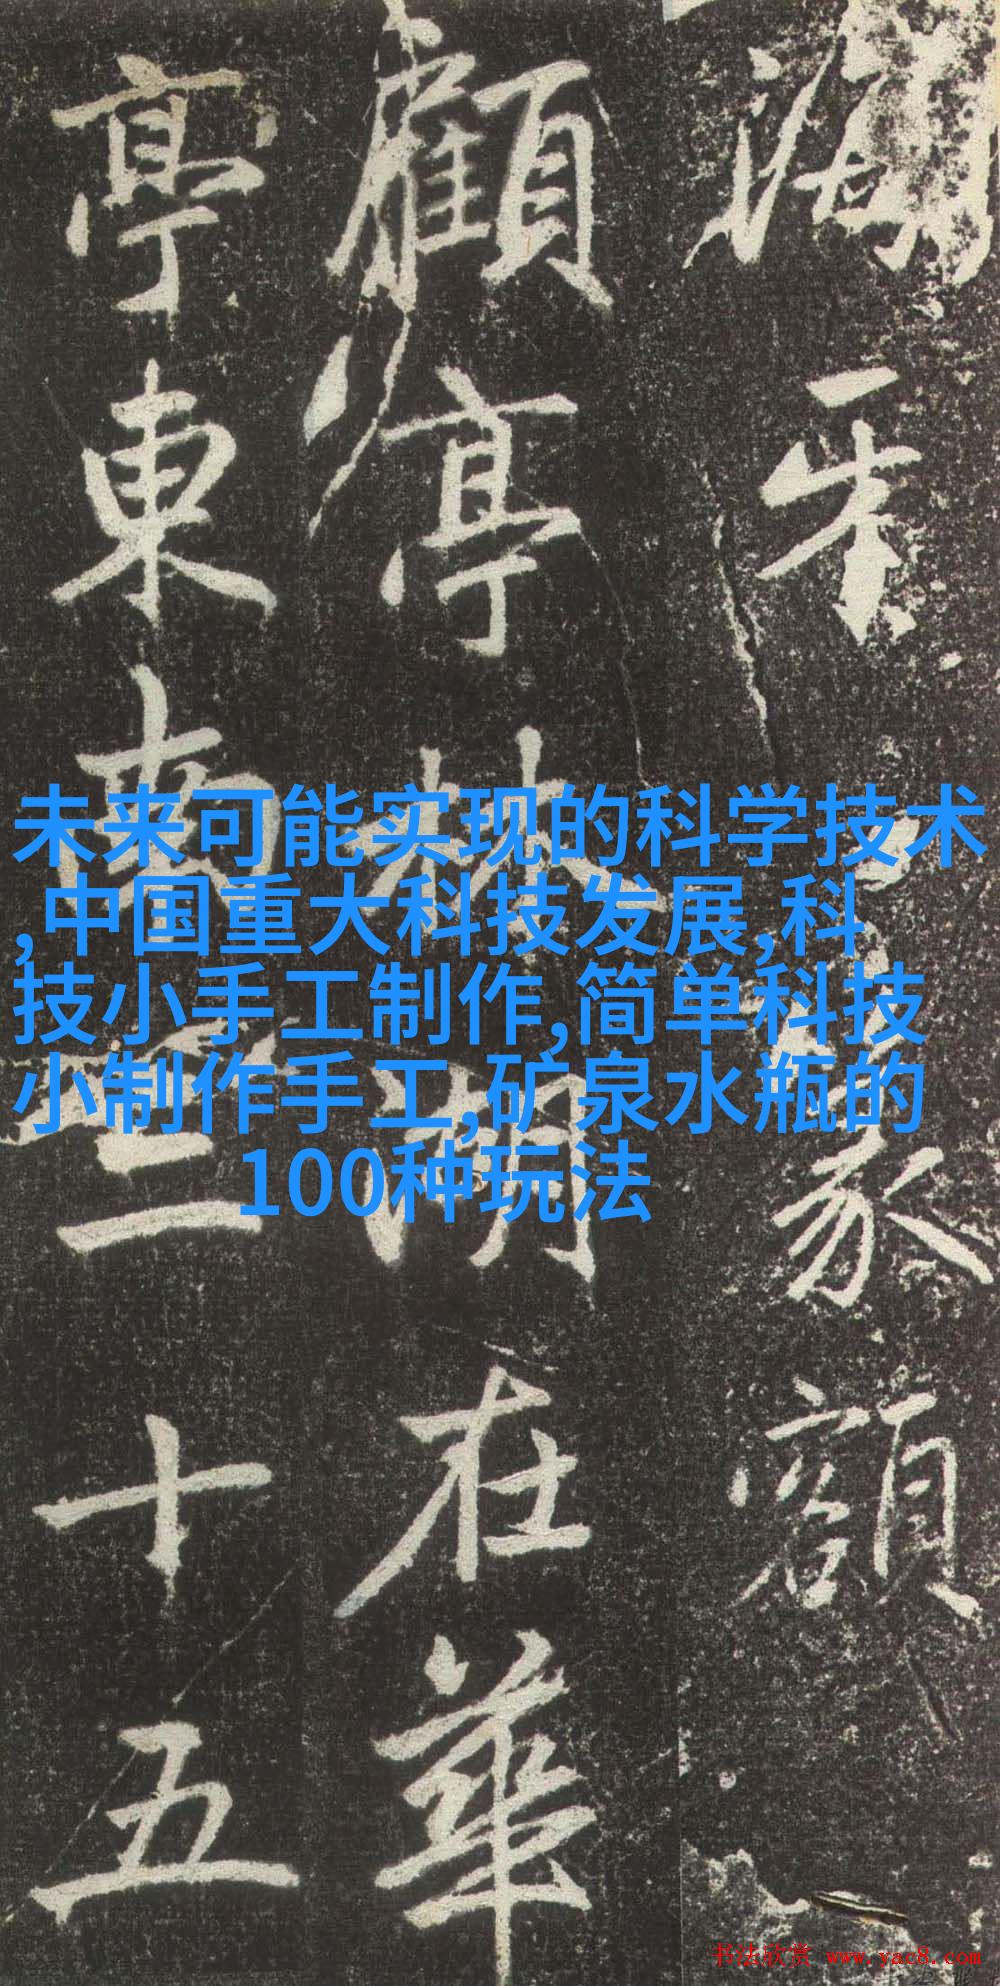 額
顧亭林湖在華
亭東南三十五
未来可能实现的科学技术
,中国重大科技发展,科
技小手工制作,简单科技
小制作手工,矿泉水瓶的
100种玩法
书法欣赏 www.yac8.com